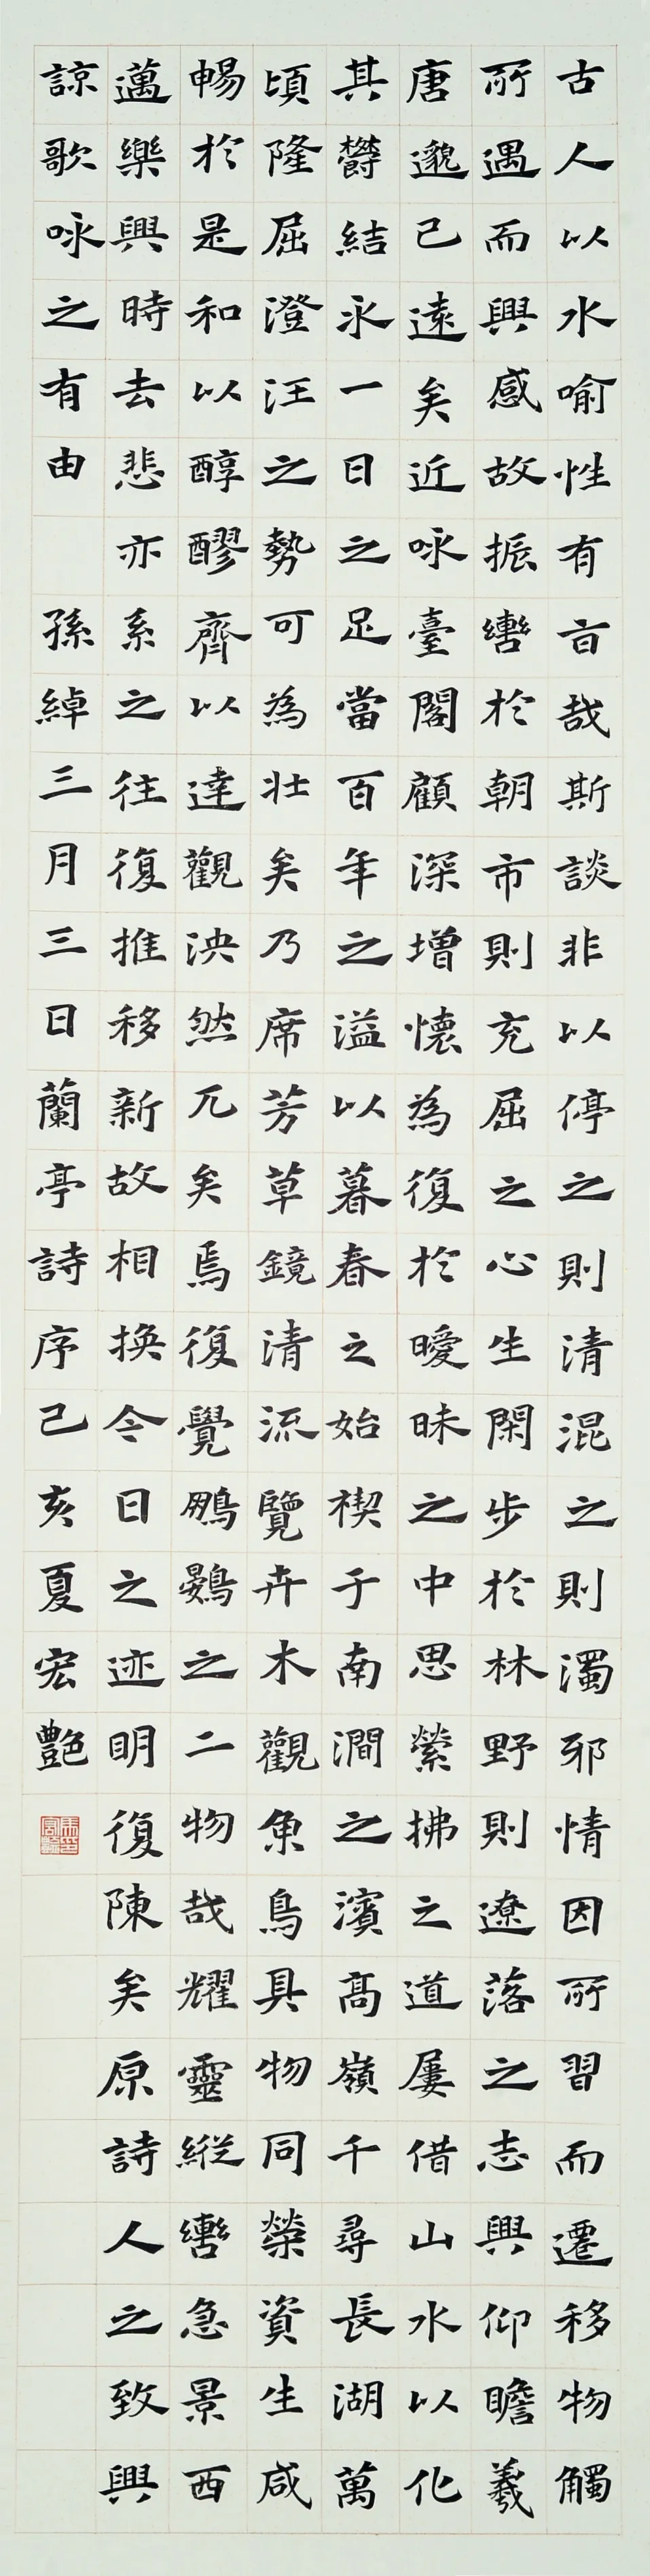 古人以水喻性有旨哉斯談非以停之則清混之則濁邪情因所習而遷移物觸
所遇而興感故振轡於朝市則充屈之心生閑步於林野則遼落之志興仰瞻羲
唐邈已遠矣近咏臺閣顧深增懷為復於曖昧之中思縈拂之道屢借山水以化
其鬱結永一日之足當百年之溢以暮春之始禊于南澗之濱高嶺千尋長湖萬
頃隆屈澄汪之勢可為壯矣乃席芳草鏡清流覽卉木觀魚鳥具物同榮資生咸
暢於是和以醇醪齊以達觀泱然兀矣焉復覺鵬鷃之二物哉耀靈縱轡急景西
邁樂與時去悲亦系之往復推移新故相換今日之迹明復陳矣原詩人之致興
諒歌咏之有由　孫綽三月三日蘭亭詩序己亥夏宏艷